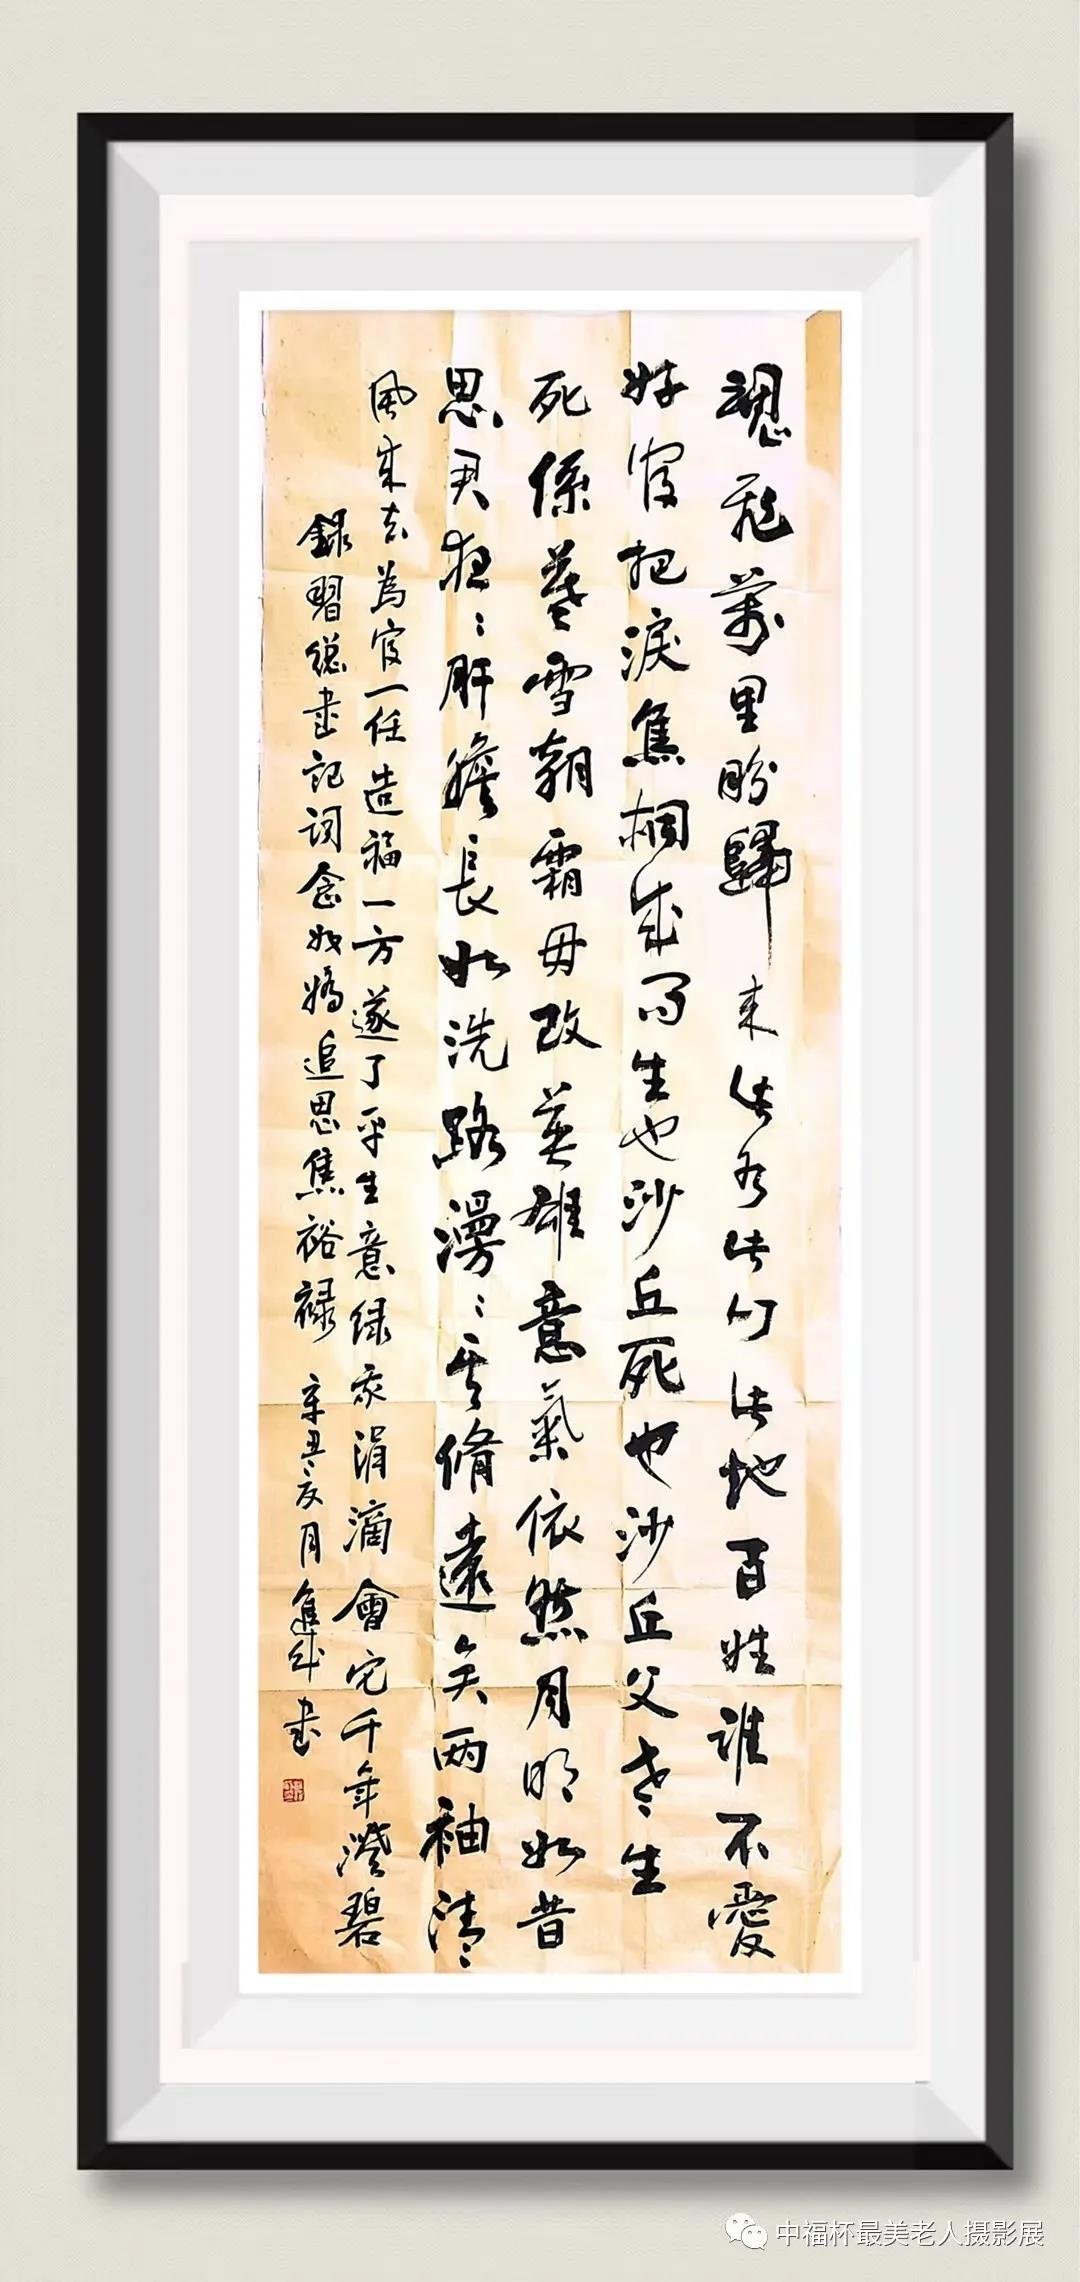 魂飛萬里盼歸来此水此山此地百姓誰不愛
好官把淚焦桐成雨生也沙丘死也沙丘父老生
死係暮雪朝霜毋改英雄意氣依然月明如昔
思君夜々肝膽長如洗路漫々其脩遠矣两袖清
風来去為官一任造福一方遂了平生意绿我涓滴會它千年澄碧
録習總書記词念奴嬌追思焦裕禄 辛丑夏月 書
中福杯最美老人摄影展